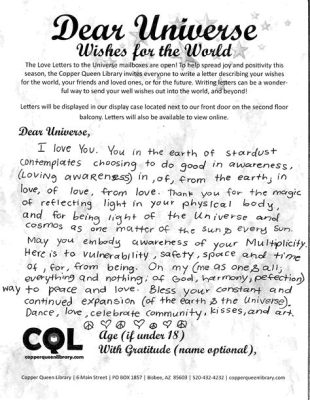 Dear Universe
Wishes for the World
The Love Letters to the Universe mailboxes are open! To help spread joy and positivity this
season, the Copper Queen Library invites everyone to write a letter describing your wishes
for the world, your friends and loved ones, or for the future. Writing letters can be a wonder-
ful way to send your well wishes out into the world, and beyond!
Letters will be displayed in our display case located next to our front door on the second floor
balcony. Letters will also be available to view online.
Dear Universe,
I love You. You in the earth of stardust
contemplates choosing to do good in awareness,
(Loving awareness) in, of, from the earth, in
love, of love, from love. Thank you for the magic
of reflecting light in your physical body,
and for being light of the Universe and
cosmos as one matter of the sun & every sun.
May you embody awareness of your Multiplicity.
Here is to vulnerability, safety, space and time
of, for, from being. On my (me as one & all;
everything and nothing, of God, harmony, pefection)
way to peace and love. Bless your constant and
continued expansion (of the earth & the Universe).
Dance, love, celebrate community, kisses, and art.
☮ ♡ ☮ ♡ ☮ ♡ ☮
COL
copperqueenlibrary.com
Age (if under 18)
With Gratitude (name optional),
Copper Queen Library | 6 Main Street | PO BOX 1857 | Bisbee, AZ 85603 | 520-432-4232 | copperqueenlibrary.com